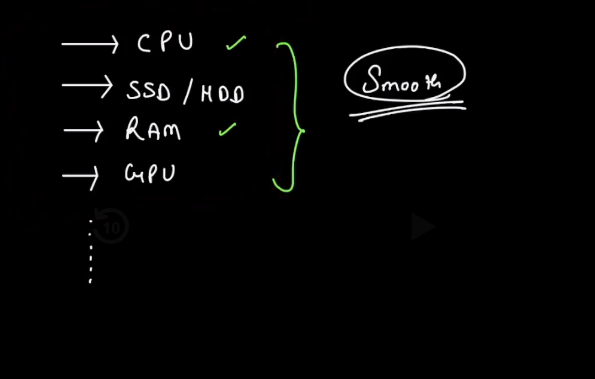 CPU
SSD / HDD
RAM
GPU
Smooth
10